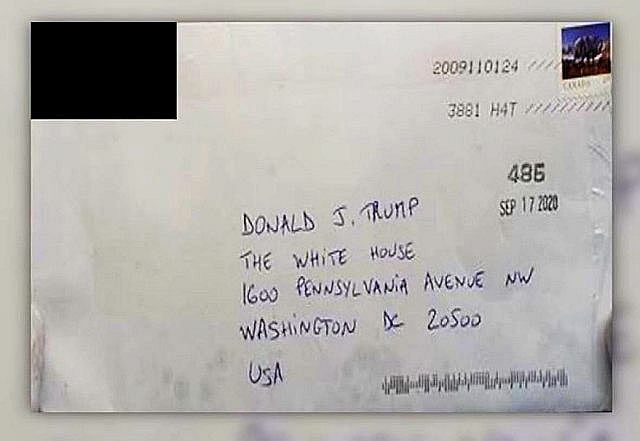 2009110124
CANADA
3881 H4T
486
SEP 17 2020
DONALD J. TRUMP
THE WHITE HOUSE
1600 PENNSYLVANIA AVENUE NW
WASHINGTON DC 20500
USA